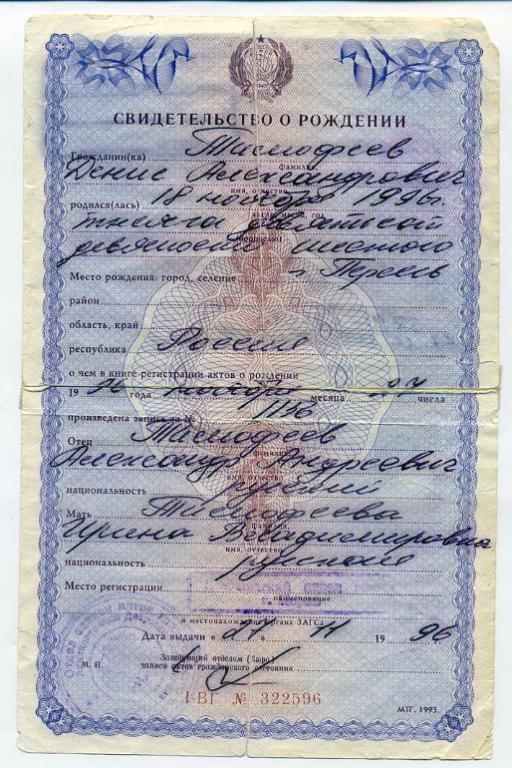 СВИДЕТЕЛЬСТВО О РОЖДЕНИИ
Гражданин(ка) Тимофеев
фамилия,
Денис Александрович
имя, отчество
родился(лась) 18 ноября 1996г.
тысяча девятьсот
девяносто шестого
Место рождения: город, селение г.
район
область, край
республика Россия
о чем в книге регистрации актов о рождении
19 96 года ноября месяца 27 числа
произведена запись за № 1136
Отец Тимофеев
фамилия,
Александр Андреевич
имя, отчество
национальность русский
Мать Тимофеева
фамилия,
Ирина Владимировна
имя, отчество
национальность русская
Место регистрации
наименование
и местонахождение органа ЗАГСа
Дата выдачи « 27 » 11 19 96
М. П.
Заведующий отделом (бюро)
записи актов гражданского состояния
I-ВГ № 322596
МТГ. 1993.